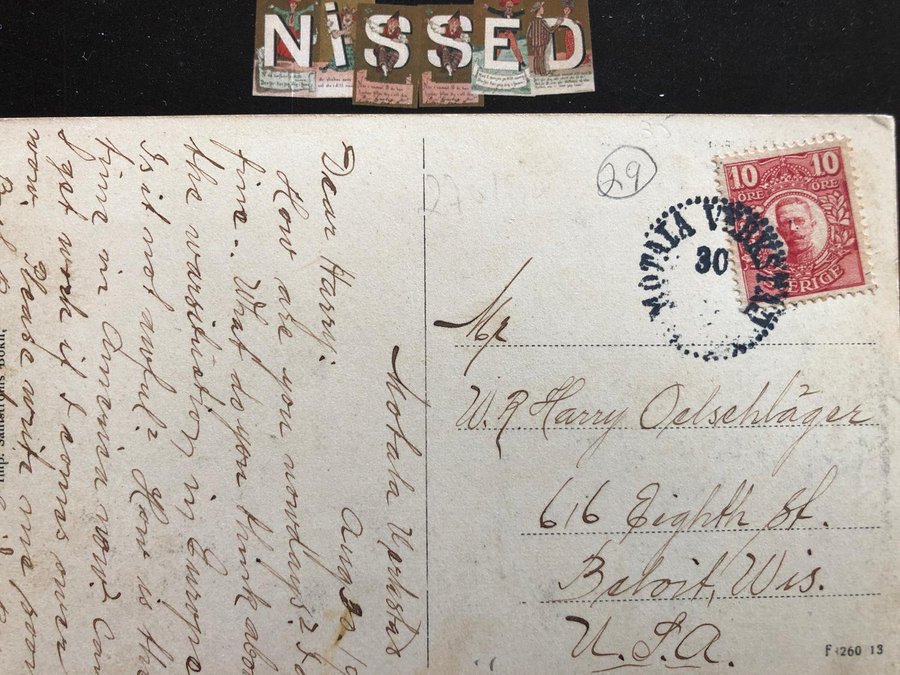 NiSSED
Motala Verkstad
Aug 30, 19
Dear Harry:
How are you nowdays? I a
fine. What do you think abou
the warsituation in Europe
Is it not awful? How is the
time in America now? Can
I get work if I comes over
Please write me soon
Imp. Sandströms Bokh.
29
10 10
ÖRE ÖRE
SVERIGE
MOTALA VERKSTAD
30
Mr
W. R Harry Oelschläger
616 Eighth St.
Beloit, Wis.
U.S.A.
F 1260 13